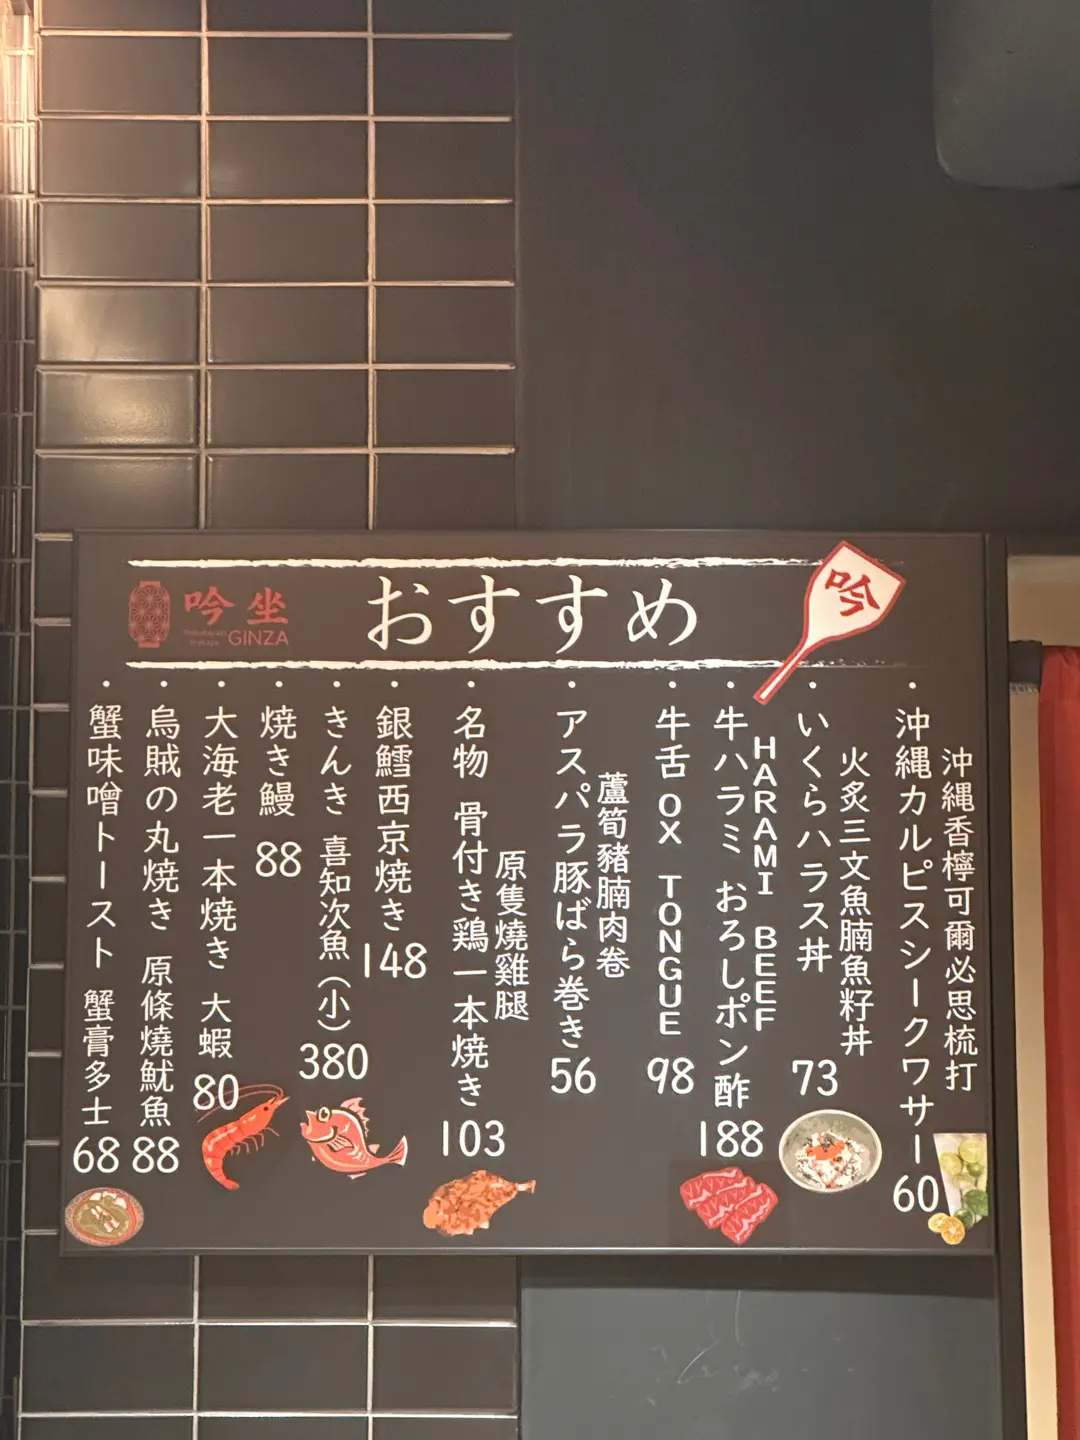 吟坐
GINZA
おすすめ
吟
沖縄香檸可爾必思梳打
沖縄カルピスシークワサー
60
火炙三文魚腩魚籽丼
いくらハラス丼
73
HARAMI BEEF
牛ハラミ おろしポン酢
188
牛舌 OX TONGUE
98
蘆筍豬腩肉卷
アスパラ豚ばら巻き
56
原隻燒雞腿
名物 骨付き鶏一本焼き
103
銀鱈西京焼き
148
きんき 喜知次魚(小)
380
焼き鰻
88
大海老一本焼き 大蝦
80
烏賊の丸焼き 原條燒魷魚
88
蟹味噌トースト 蟹膏多士
68